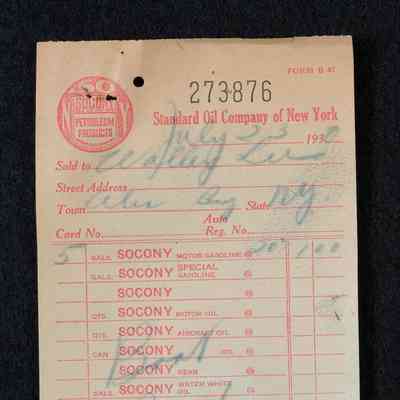 FORM B 47
273876
SOCONY
PETROLEUM
PRODUCTS
Standard Oil Company of New York
July 23 193
Sold to
Street Address
Town Alex Bay State N.Y.
Auto
Card No. Reg. No.
5 GALS. SOCONY MOTOR GASOLINE @ 20 1 00
GALS. SOCONY SPECIAL GASOLINE @
SOCONY @
QTS. SOCONY MOTOR OIL @
QTS. SOCONY AIRCRAFT OIL @
CAN SOCONY OIL @
SOCONY GEAR @
GALS. SOCONY WATER WHITE @
Boat